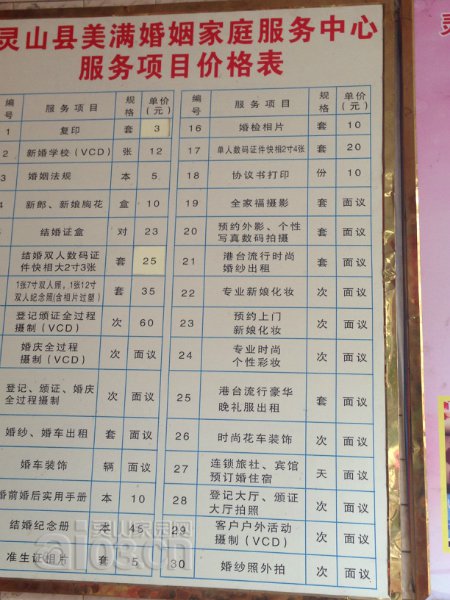 灵山县美满婚姻家庭服务中心
服务项目价格表
编号 服务项目 规格 单价(元)
1 复印 套 3
2 新婚学校(VCD) 张 12
3 婚姻法规 本 5
新郎、新娘胸花 盒 10
结婚证盒 对 23
结婚双人数码证
件快相大2寸3张 套 25
1张7寸双人照,1张12寸
双人纪念照(含相片过塑) 套 35
登记颁证全过程
摄制(VCD) 次 60
婚庆全过程
摄制(VCD) 次 面议
登记、颁证、婚庆
全过程摄制 次 面议
婚纱、婚车出租 套 面议
婚车装饰 辆 面议
婚前婚后实用手册 本 10
结婚纪念册 本 45
准生证组片 套 5
编号 服务项目 规格 单价(元)
16 婚检相片 套 10
17 单人数码证件快相2寸4张 套 20
18 协议书打印 份 10
19 全家福摄影 套 面议
20 预约外影、个性
写真数码拍摄 套 面议
21 港台流行时尚
婚纱出租 套 面议
22 专业新娘化妆 次 面议
23 预约上门
新娘化妆 次 面议
24 专业时尚
个性彩妆 次 面议
25 港台流行豪华
晚礼服出租 套 面议
26 时尚花车装饰 次 面议
27 连锁旅社、宾馆
预订婚住宿 天 面议
28 登记大厅、颁证
大厅拍照 次 面议
29 客户户外活动
摄制(VCD) 次 面议
30 婚纱照外拍 次 面议
灵